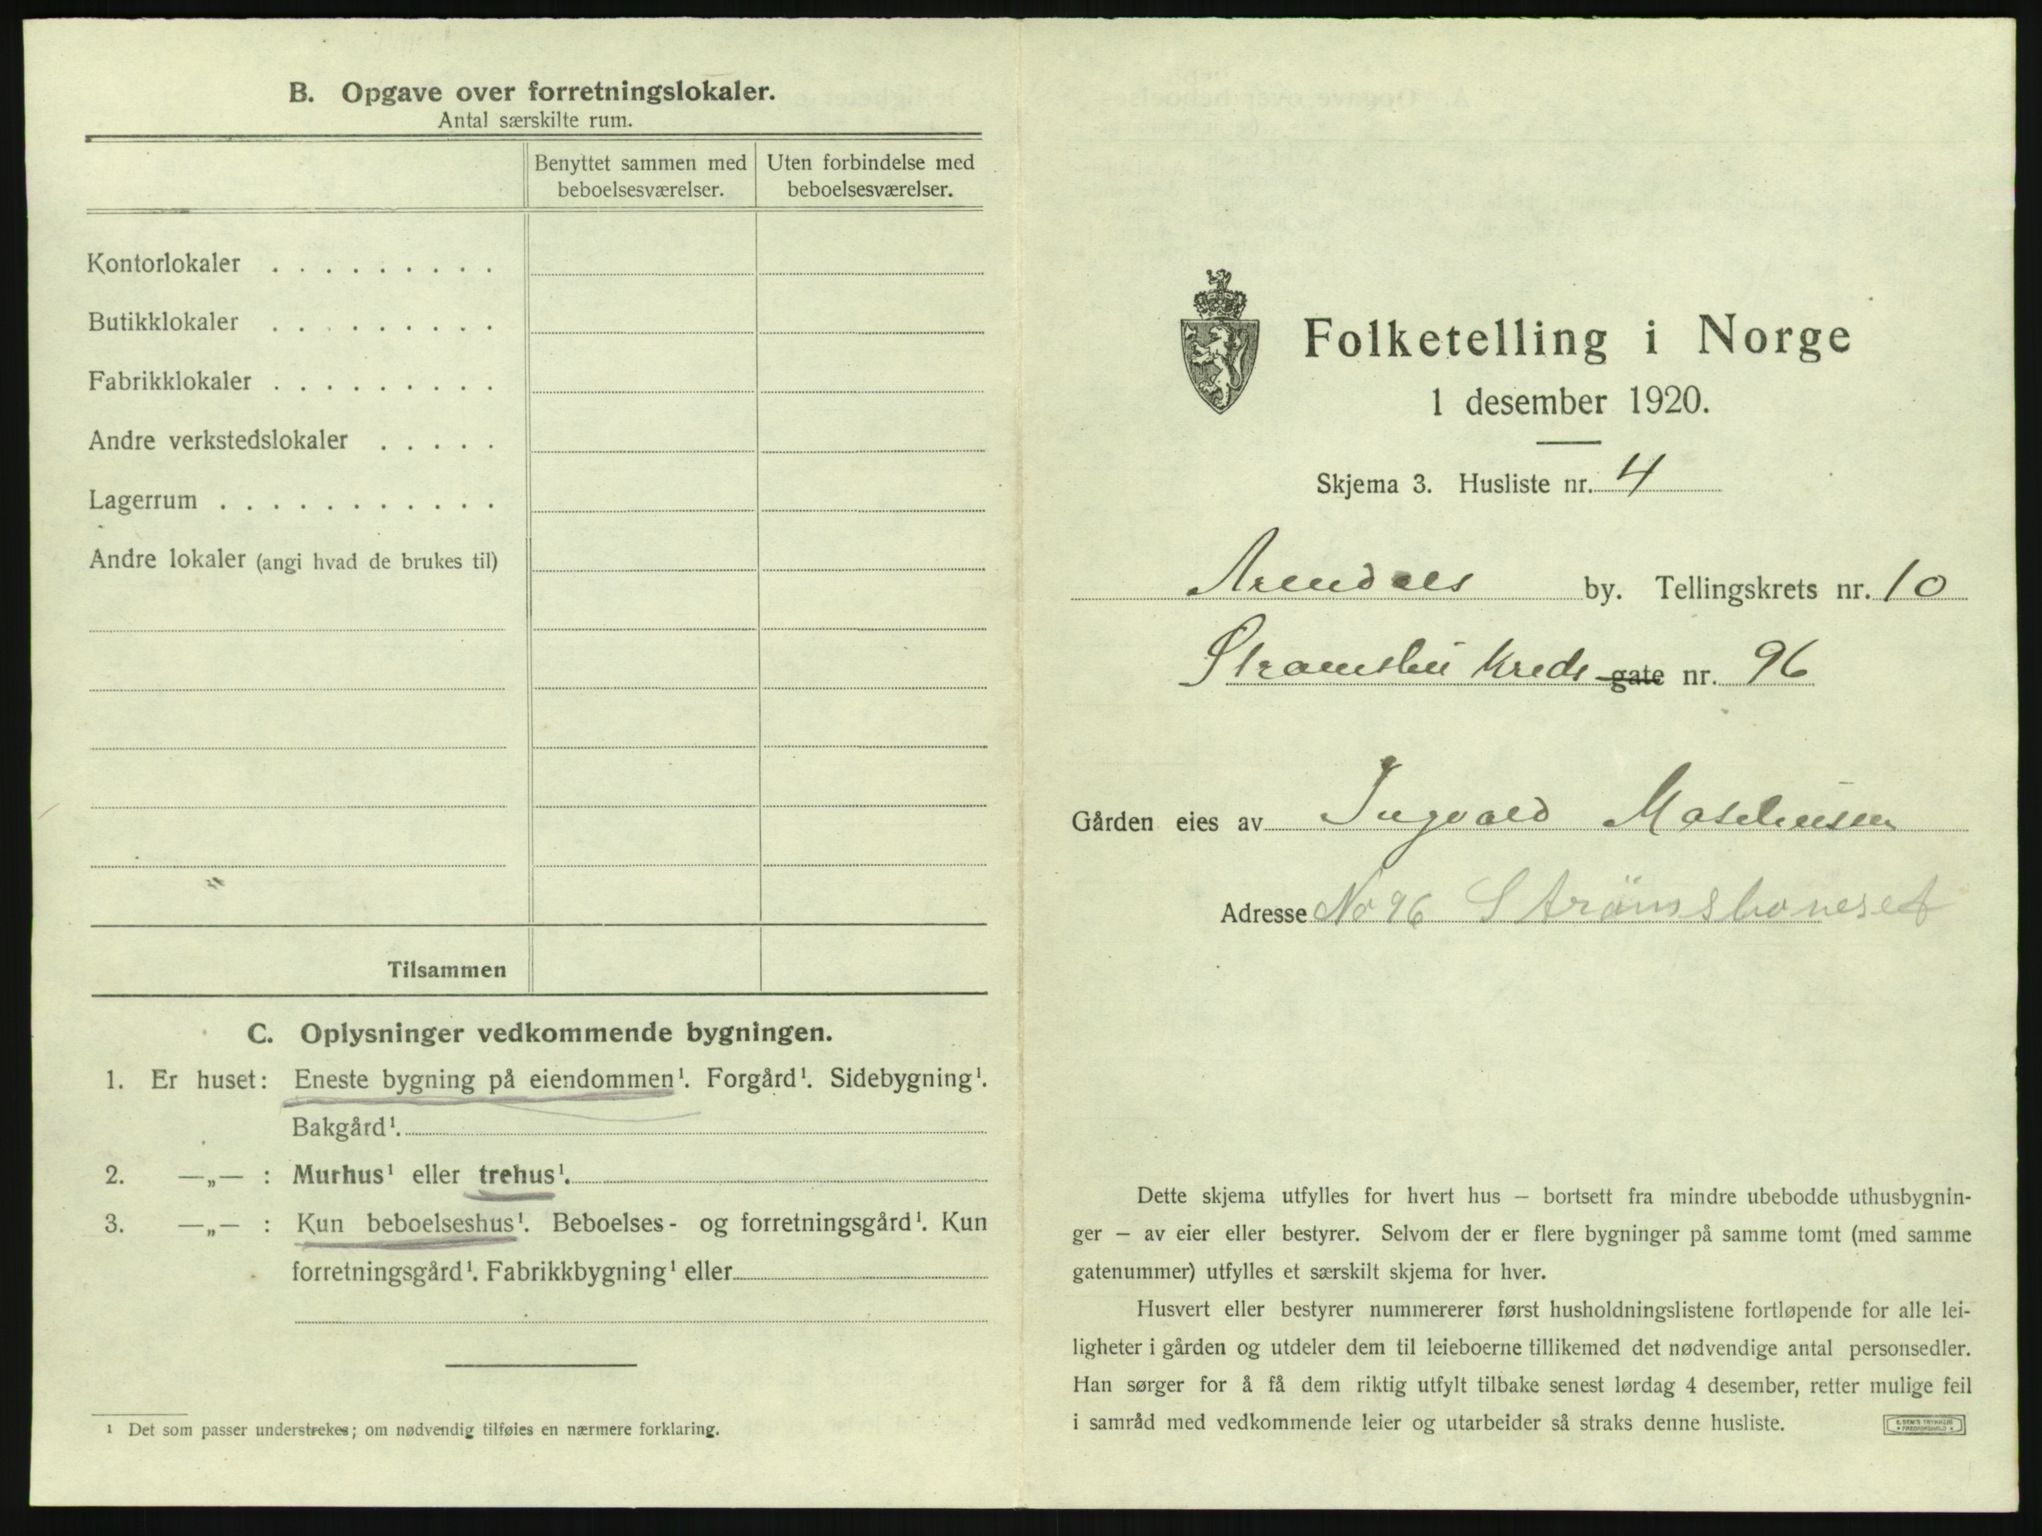 B. Opgave over forretningslokaler.
Antal særskilte rum.
Benyttet sammen med beboelsesværelser.
Uten forbindelse med beboelsesværelser.
Kontorlokaler . . . . . . . . .
Butikklokaler . . . . . . . . .
Fabrikklokaler . . . . . . . . .
Andre verkstedslokaler . . . . .
Lagerrum . . . . . . . . . . .
Andre lokaler (angi hvad de brukes til)
Tilsammen
C. Oplysninger vedkommende bygningen.
1. Er huset: Eneste bygning på eiendommen¹. Forgård¹. Sidebygning¹.
Bakgård¹.
2. —„— : Murhus¹ eller trehus¹.
3. —„— : Kun beboelseshus¹. Beboelses- og forretningsgård¹. Kun
forretningsgård¹. Fabrikkbygning¹ eller
¹ Det som passer understrekes; om nødvendig tilføies en nærmere forklaring.
Folketelling i Norge
1 desember 1920.
Skjema 3. Husliste nr. 4
Arendals by. Tellingskrets nr. 10
Strømsbu Kreds gate nr. 96
Gården eies av Ingvald
Adresse No 96 Strømsboneset
Dette skjema utfylles for hvert hus – bortsett fra mindre ubebodde uthusbygnin-
ger – av eier eller bestyrer. Selvom der er flere bygninger på samme tomt (med samme
gatenummer) utfylles et særskilt skjema for hver.
Husvert eller bestyrer nummererer først husholdningslistene fortløpende for alle lei-
ligheter i gården og utdeler dem til leieboerne tillikemed det nødvendige antal personsedler.
Han sørger for å få dem riktig utfylt tilbake senest lørdag 4 desember, retter mulige feil
i samråd med vedkommende leier og utarbeider så straks denne husliste.